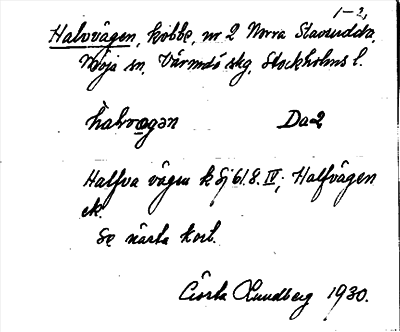 1-2,
Halvvägen, kobbe, nr 2 Norra Stavsudda,
Möja sn, Värmdö skg, Stockholms l.
hàlvvägən Da2
Halfva vägen k Sj 61.8.IV; Halfvägen
ek.
Se nästa kort.
Gösta Lundberg 1930.